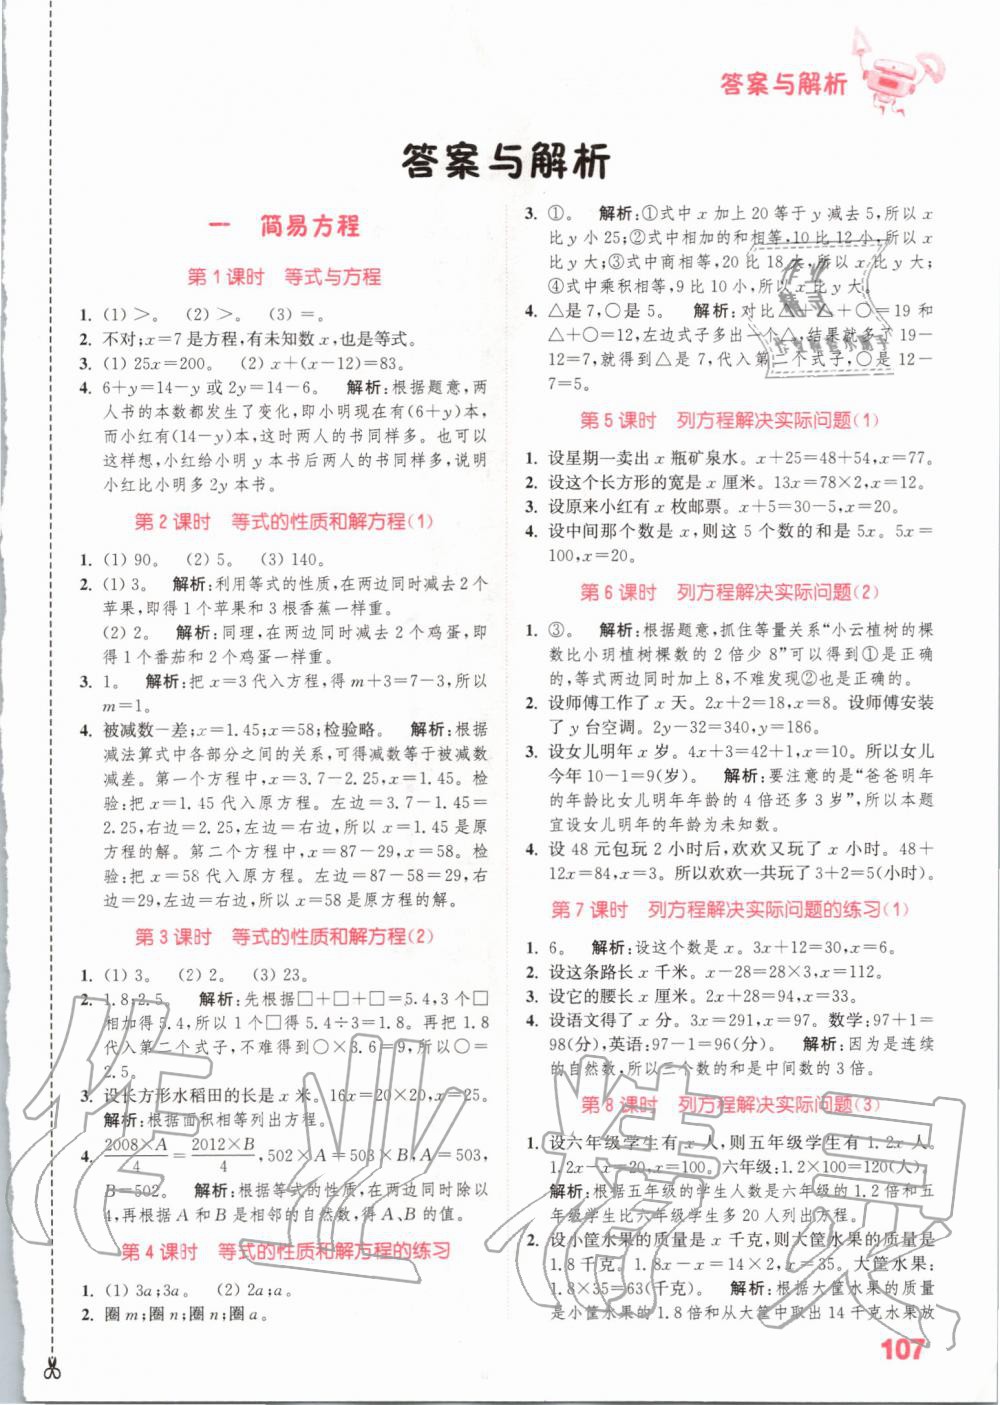 答案与解析
答案与解析
一 简易方程
第1课时 等式与方程
1. (1) >。 (2) >。 (3) =。
2. 不对;x=7是方程,有未知数x,也是等式。
3. (1) 25x=200。 (2) x+(x-12)=83。
4. 6+y=14-y或2y=14-6。 解析:根据题意,两
人书的本数都发生了变化,即小明现在有(6+y)本,
而小红有(14-y)本,这时两人的书同样多。也可以
这样想,小红给小明y本书后两人的书同样多,说明
小红比小明多2y本书。
第2课时 等式的性质和解方程(1)
1. (1) 90。 (2) 5。 (3) 140。
2. (1) 3。 解析:利用等式的性质,在两边同时减去2个
苹果,即得1个苹果和3根香蕉一样重。
(2) 2。 解析:同理,在两边同时减去2个鸡蛋,即得
1个番茄和2个鸡蛋一样重。
3. 1。 解析:把x=3代入方程,得m+3=7-3,所以
m=1。
4. 被减数-差;x=1.45;x=58;检验略。 解析:根据
减法算式中各部分之间的关系,可得减数等于被减数
减差。第一个方程中,x=3.7-2.25,x=1.45。检
验:把x=1.45代入原方程。左边=3.7-1.45=
2.25,右边=2.25,左边=右边,所以x=1.45是原
方程的解。第二个方程中,x=87-29,x=58。检
验:把x=58代入原方程。左边=87-58=29,右边
=29,左边=右边,所以x=58是原方程的解。
第3课时 等式的性质和解方程(2)
1. (1) 3。 (2) 2。 (3) 23。
2. 1.8;2.5。 解析:先根据□+□+□=5.4,3个□
相加得5.4,所以1个□得5.4÷3=1.8。再把1.8
代入第二个式子,不难得到○×3.6=9,所以○=
2.5。
3. 设长方形水稻田的长是x米。16x=20×20,x=25。
解析:根据面积相等列出方程。
4. 2008×A/4=2012×B/4,502×A=503×B,A=503,
B=502。 解析:根据等式的性质,在两边同时除以
4,再根据A和B是相邻的自然数,得A、B的值。
第4课时 等式的性质和解方程的练习
1. (1) 3a;3a。 (2) 2a;a。
2. 圈m;圈n;圈n;圈a。
3. ①。 解析:①式中x加上20等于y减去5,所以x
比y小25;②式中相加的和相等,10比12小,所以x
比y大;③式中商相等,20比18大,所以x比y大;
④式中乘积相等,9比10小,所以x比y大。
4. △是7,○是5。 解析:对比△+△+○=19和
△+○=12,左边式子多出一个△,结果就多了19-
12=7,就得到△是7,代入第二个式子,○是12-
7=5。
第5课时 列方程解决实际问题(1)
1. 设星期一卖出x瓶矿泉水。x+25=48+54,x=77。
2. 设这个长方形的宽是x厘米。13x=78×2,x=12。
3. 设原来小红有x枚邮票。x+5=30-5,x=20。
4. 设中间那个数是x,则这5个数的和是5x。5x=
100,x=20。
第6课时 列方程解决实际问题(2)
1. ③。 解析:根据题意,抓住等量关系“小云植树的棵
数比小玥植树棵数的2倍少8”可以得到①是正确
的,等式两边同时加上8,不难发现②也是正确的。
2. 设师傅工作了x天。2x+2=18,x=8。设师傅安装
了y台空调。2y-32=340,y=186。
3. 设女儿明年x岁。4x+3=42+1,x=10。所以女儿
今年10-1=9(岁)。 解析:要注意的是“爸爸明年
的年龄比女儿明年年龄的4倍还多3岁”,所以本题
宜设女儿明年的年龄为未知数。
4. 设48元包玩2小时后,欢欢又玩了x小时。48+
12x=84,x=3。所以欢欢一共玩了3+2=5(小时)。
第7课时 列方程解决实际问题的练习(1)
1. 6。 解析:设这个数是x。3x+12=30,x=6。
2. 设这条路长x千米。x-28=28×3,x=112。
3. 设它的腰长x厘米。2x+24=90,x=33。
4. 设语文得了x分。3x=291,x=97。数学:97+1=
98(分),英语:97-1=96(分)。 解析:因为是连续
的自然数,所以三个数的和是中间数的3倍。
第8课时 列方程解决实际问题(3)
1. 设六年级学生有x人,则五年级学生有1.2x人。
1.2x-x=20,x=100。六年级:1.2×100=120(人)。
解析:根据五年级的学生人数是六年级的1.2倍和五
年级学生比六年级学生多20人列出方程。
2. 设小筐水果的质量是x千克,则大筐水果的质量是
1.8x千克。1.8x-x=14×2,x=35。大筐水果:
1.8×35=63(千克)。 解析:根据大筐水果的质量
是小筐水果的1.8倍和从大筐中取出14千克水果放
107
作业精灵